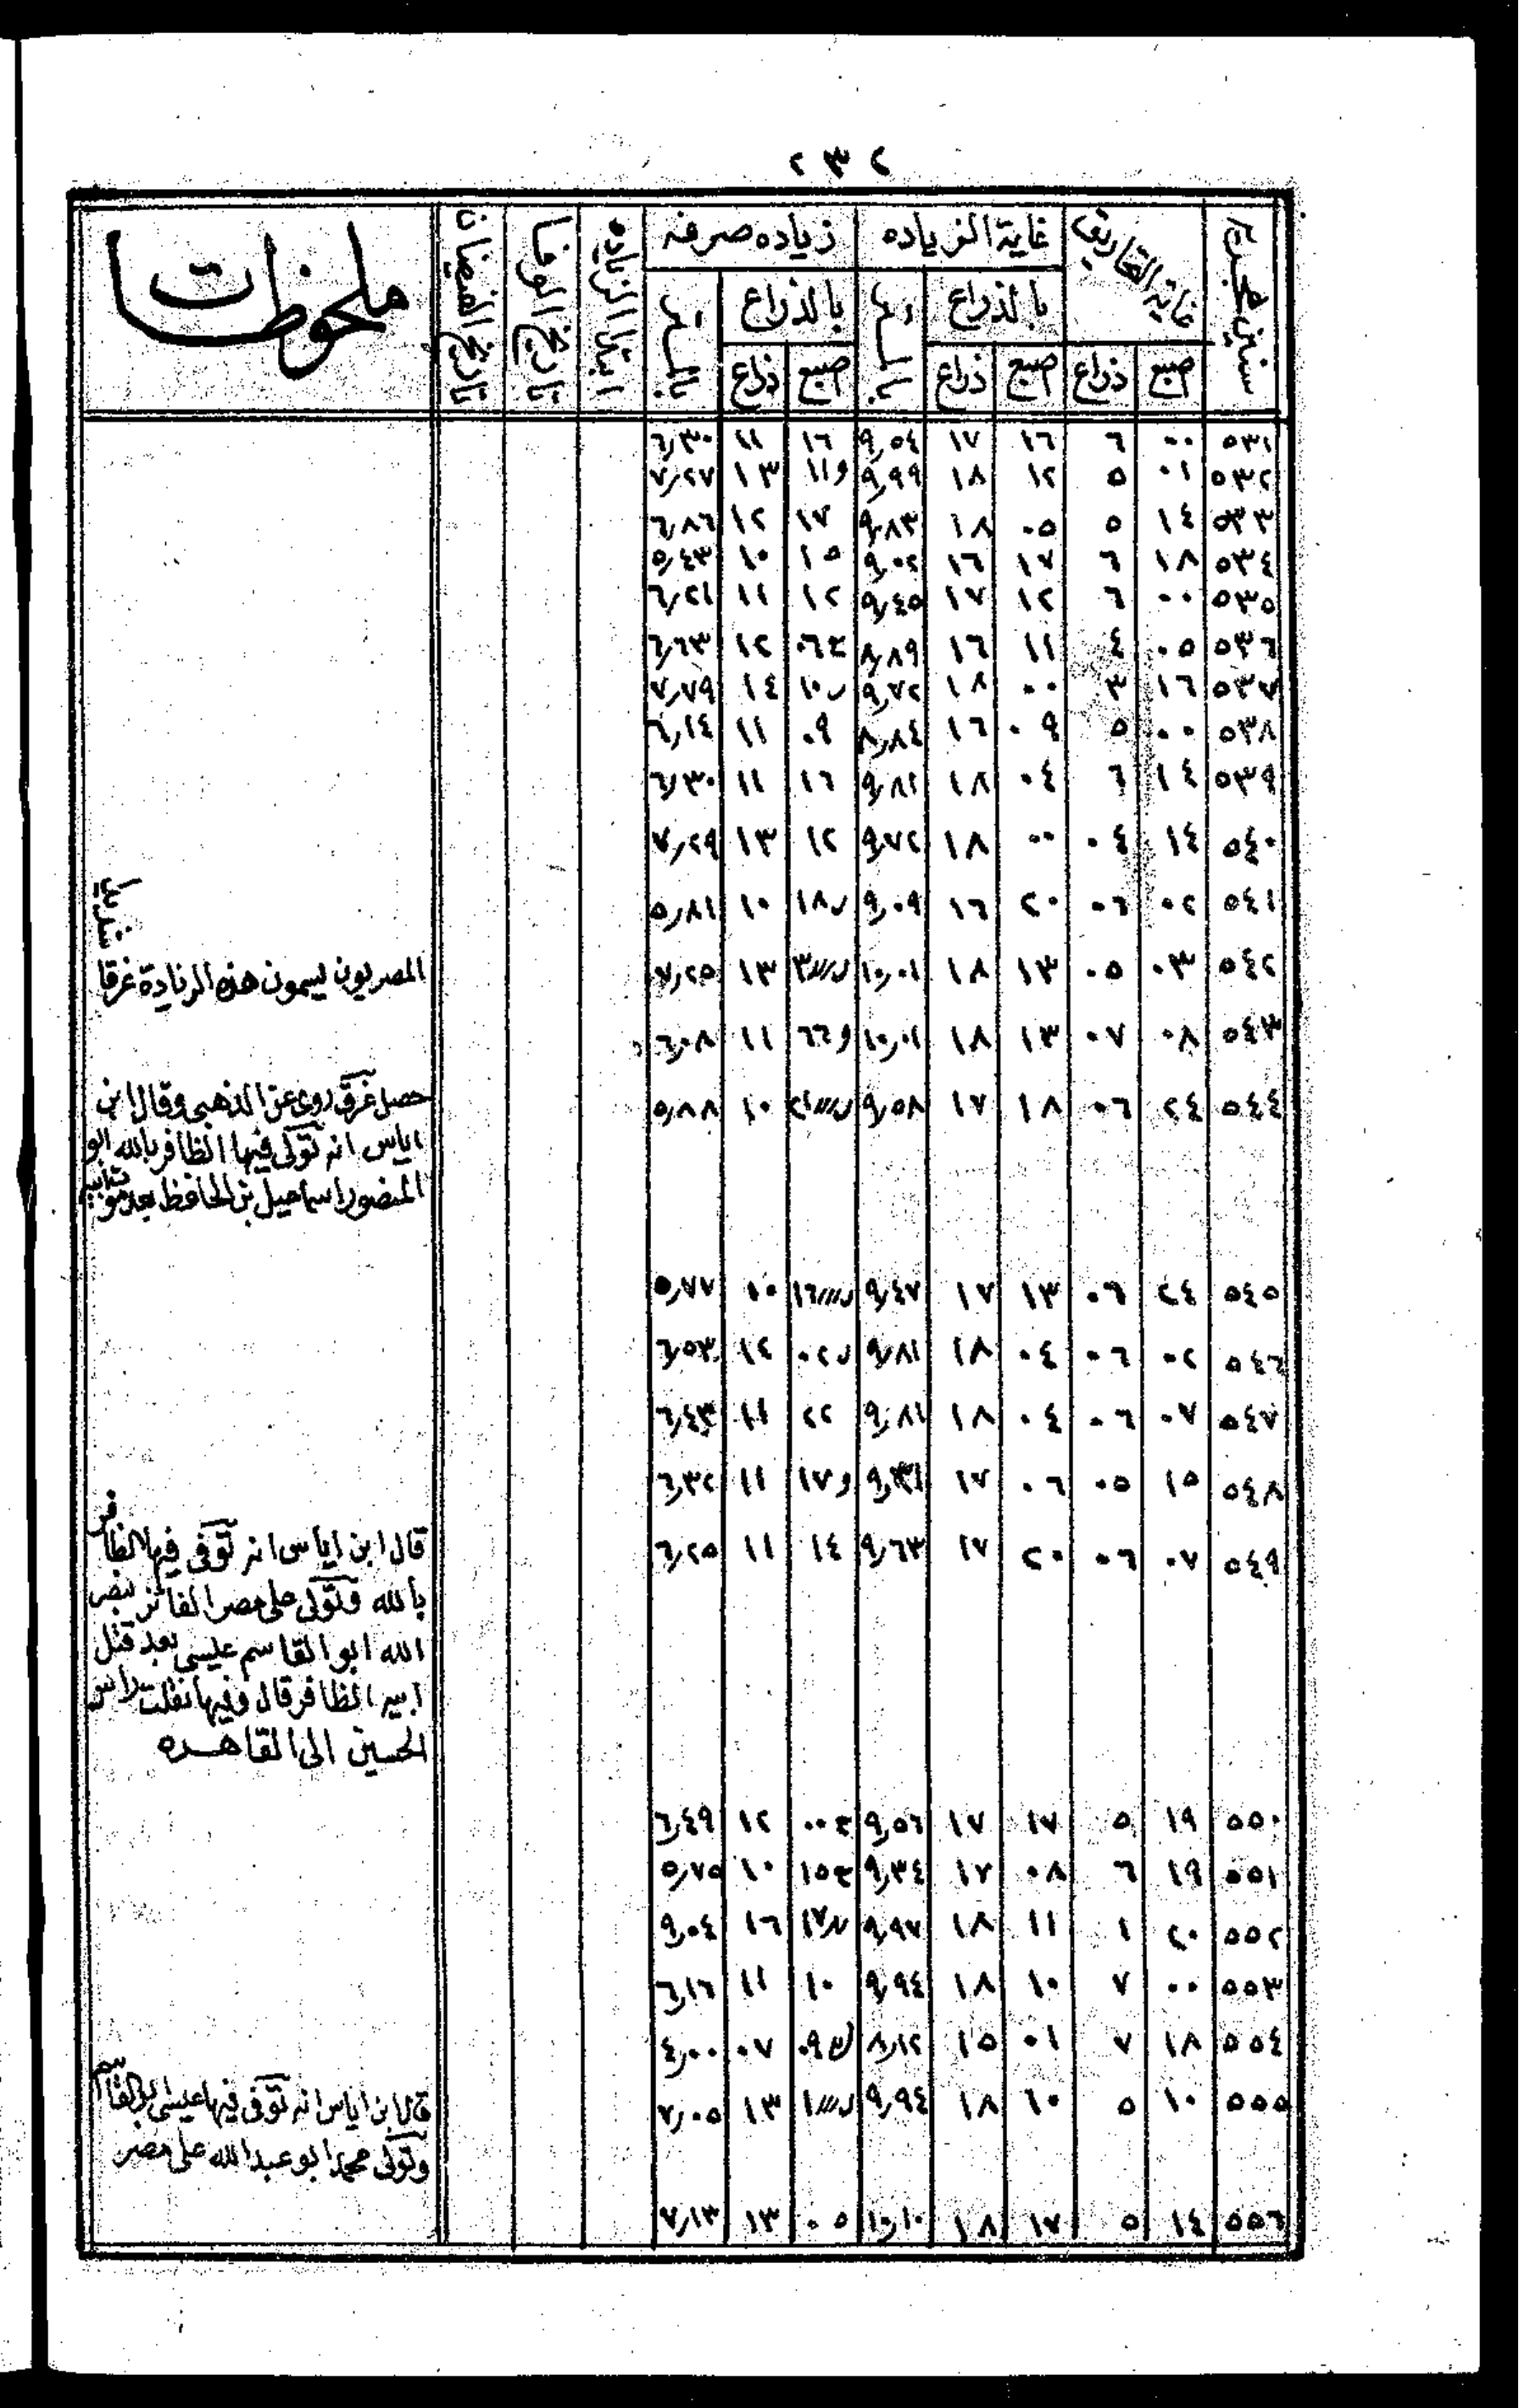 ٢٣٢
سنين هجريه
غاية التحاريق
غاية الزياده
زياده صرفه
ابتدا الزياده
تاريخ الوفا
تاريخ الفيضان
ملحوظات
بالذراع
بالذراع
صبع ذراع صبع ذراع صبع ذراع
٥٣١ ٠٠ ٦ ١٦ ١٧ ٩٫٥٤ ١٦ ١١ ٦٫٣٠
٥٣٢ ٠١ ٥ ١٢ ١٨ ٩٫٩٩ و١١ ١٣ ٧٫٢٧
٥٣٣ ١٤ ٥ ٠٥ ١٨ ٩٫٨٣ ١٧ ١٢ ٦٫٨٦
٥٣٤ ١٨ ٦ ١٧ ١٦ ٩٫٠٢ ١٥ ١٠ ٥٫٤٣
٥٣٥ ٠٠ ٦ ١٢ ١٧ ٩٫٤٥ ١٢ ١١ ٦٫٢١
٥٣٦ ٠٥ ٤ ١١ ١٦ ٨٫٨٩ ٠٦ ١٢ ٦٫٦٣
٥٣٧ ١٦ ٣ ٠٠ ١٨ ٩٫٧٢ ١٠ ١٤ ٧٫٧٩
٥٣٨ ٠٠ ٥ ٠٩ ١٦ ٨٫٨٤ ٠٩ ١١ ٦٫١٤
٥٣٩ ١٤ ٦ ٠٤ ١٨ ٩٫٨١ ١٦ ١١ ٦٫٣٠
٥٤٠ ١٤ ٠٤ ٠٠ ١٨ ٩٫٧٢ ١٢ ١٣ ٧٫٢٩
٥٤١ ٠٢ ٠٦ ٢٠ ١٦ ٩٫٠٩ ١٨ ١٠ ٥٫٨١
٥٤٢ ٠٣ ٠٥ ١٣ ١٨ ١٠٫٠١ ٣ ١٣ ٧٫٢٥ المصريون يسمون هذه الزيادة غرقا
٥٤٣ ٠٨ ٠٧ ١٣ ١٨ ١٠٫٠١ ١١ ٦٫٠٨
٥٤٤ ٢٤ ٠٦ ١٨ ١٧ ٩٫٥٨ ٢١ ١٠ ٥٫٨٨ حصل غرق روى عن الذهبى وقال ابن
اياس انه تولى فيها الظافر بالله ابو
المنصور اسماعيل بن الحافظ بعد موت ابيه
٥٤٥ ٢٤ ٠٦ ١٣ ١٧ ٩٫٤٧ ١٦ ١٠ ٥٫٧٧
٥٤٦ ٠٢ ٠٦ ٠٤ ١٨ ٩٫٨١ ٠٢ ١٢ ٦٫٥٣
٥٤٧ ٠٧ ٠٦ ٠٤ ١٨ ٩٫٨١ ٢٢ ١١ ٦٫٤٣
٥٤٨ ١٥ ٠٥ ٠٦ ١٧ و١٧ ١١ ٦٫٣٢
٥٤٩ ٠٧ ٠٦ ٢٠ ١٧ ٩٫٦٣ ١٤ ١١ ٦٫٢٥ قال ابن اياس انه توفى فيها الظافر
بالله وتولى على مصر الفائز بنصر
الله ابو القاسم عيسى بعد قتل
ابيه الظافر قال وفيها نقلت راس
الحسين الى القاهره
٥٥٠ ١٩ ٥ ١٧ ١٧ ٩٫٥٦ ٠٠ ١٢ ٦٫٤٩
٥٥١ ١٩ ٦ ٠٨ ١٧ ٩٫٣٤ ١٥ ١٠ ٥٫٧٥
٥٥٢ ٢٠ ١ ١١ ١٨ ٩٫٩٧ ١٧ ١٦ ٩٫٠٤
٥٥٣ ٠٠ ٧ ١٠ ١٨ ٩٫٩٤ ١٠ ١١ ٦٫١٦
٥٥٤ ١٨ ٧ ٠١ ١٥ ٨٫١٢ ٠٩ ٠٧ ٤٫٠٠
٥٥٥ ١٠ ٥ ١٨ ٩٫٩٤ ١ ١٣ ٧٫٠٥ قال ابن اياس انه توفى فيها عيسى ابو القاسم
وتولى محمد ابو عبد الله على مصر
٥٥٦ ١٤ ٥ ١٧ ١٨ ١٠٫١٠ ٠٥ ١٣ ٧٫١٣